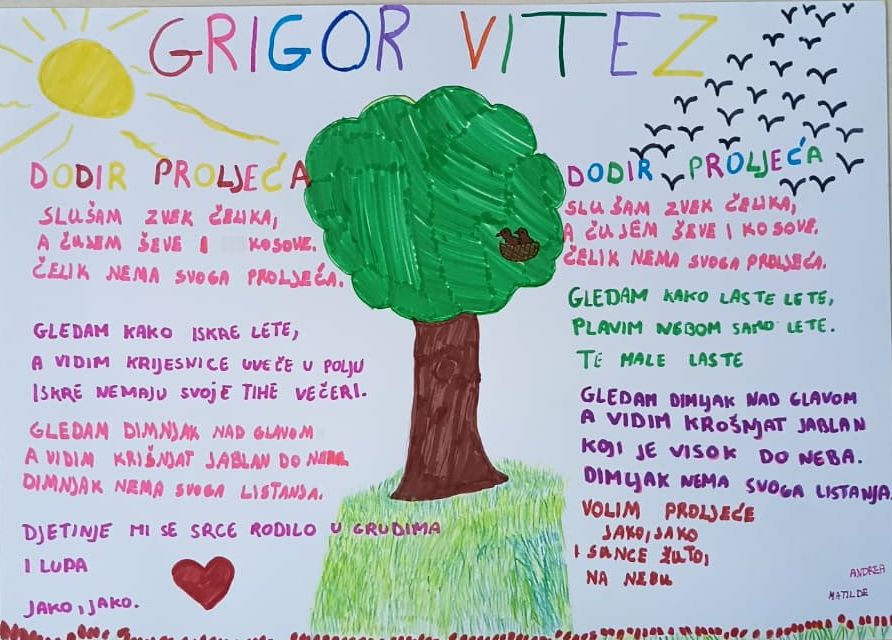 GRIGOR VITEZ
DODIR PROLJEĆA
SLUŠAM ZVEK ČELIKA,
A ČUJEM ŠEVE I KOSOVE.
ČELIK NEMA SVOGA PROLJEĆA.
GLEDAM KAKO ISKRE LETE,
A VIDIM KRIJESNICE UVEČE U POLJU
ISKRE NEMAJU SVOJE TIHE VEČERI.
GLEDAM DIMNJAK NAD GLAVOM
A VIDIM KRIŠNJAT JABLAN DO NEBA.
DIMNJAK NEMA SVOGA LISTANJA.
DJETINJE MI SE SRCE RODILO U GRUDIMA
I LUPA
JAKO, JAKO.
DODIR PROLJEĆA
SLUŠAM ZVEK ČELIKA,
A ČUJEM ŠEVE I KOSOVE.
ČELIK NEMA SVOGA PROLJEĆA.
GLEDAM KAKO LASTE LETE,
PLAVIM NEBOM SAMO LETE.
TE MALE LASTE
GLEDAM DIMLJAK NAD GLAVOM
A VIDIM KROŠNJAT JABLAN
KOJI JE VISOK DO NEBA.
DIMLJAK NEMA SVOGA LISTANJA.
VOLIM PROLJEĆE
JAKO, JAKO
I SUNCE ŽUTO,
NA NEBU
ANDREA
MATILDE